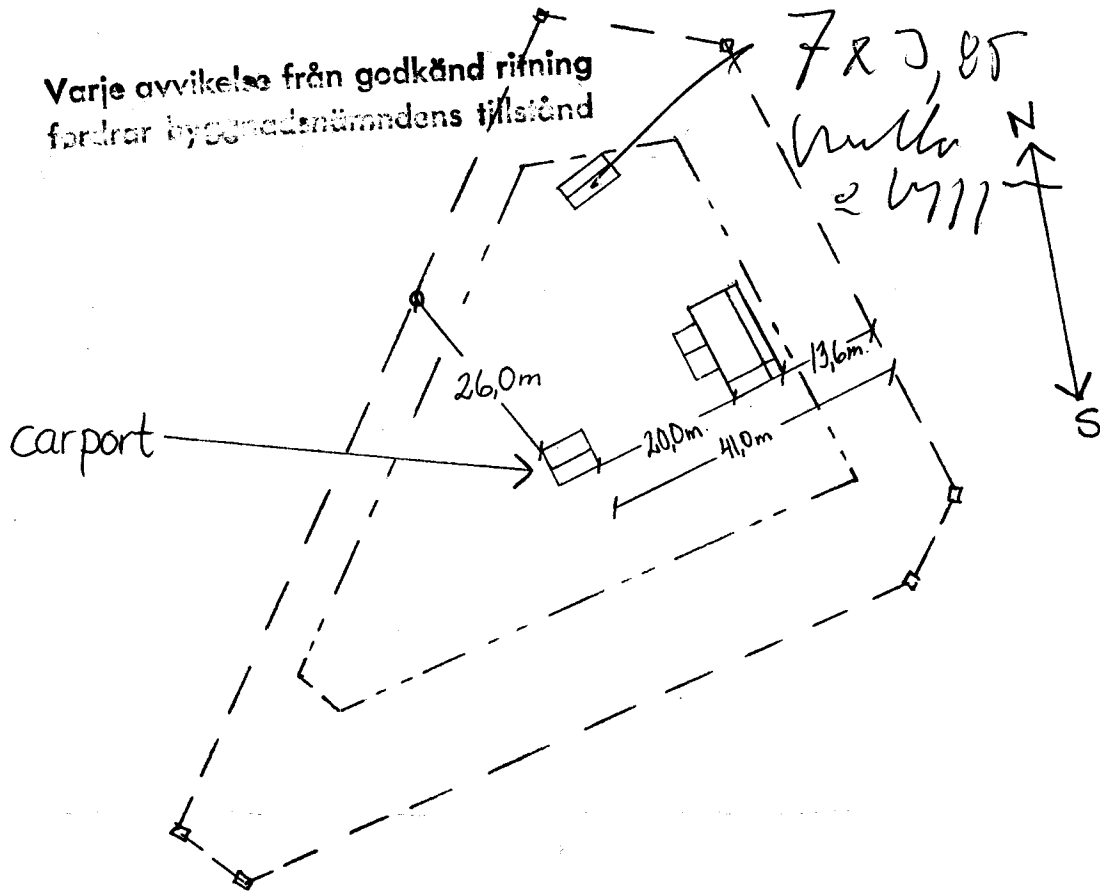 Varje avvikelse från godkänd ritning
fordrar byggnadsnämndens tillstånd
7 x 3,85
N
S
carport
26,0m
20,0m.
41,0m
13,6m.